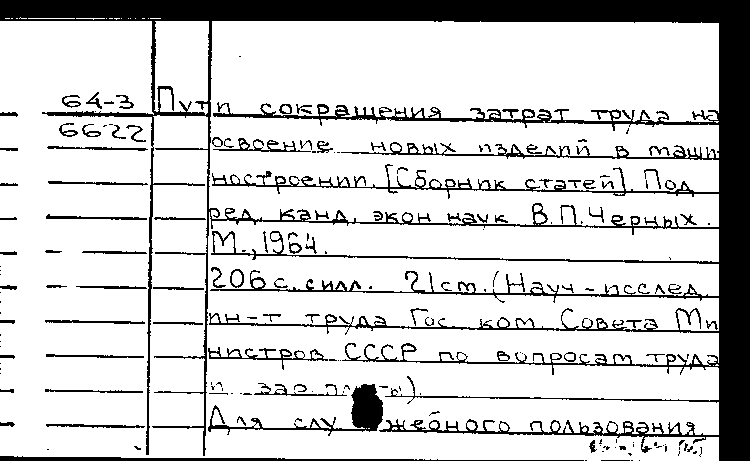 64-3 Пути сокращения затрат труда на
6622 освоение новых изделий в маши-
ностроении. [Сборник статей]. Под
ред. канд. экон наук В.П.Черных.
М., 1964.
206 с. силл. 21 cm. (Науч-исслед.
ин-т труда Гос. ком. Совета Ми
нистров СССР по вопросам труда
и зар платы)
Для служебного пользования.